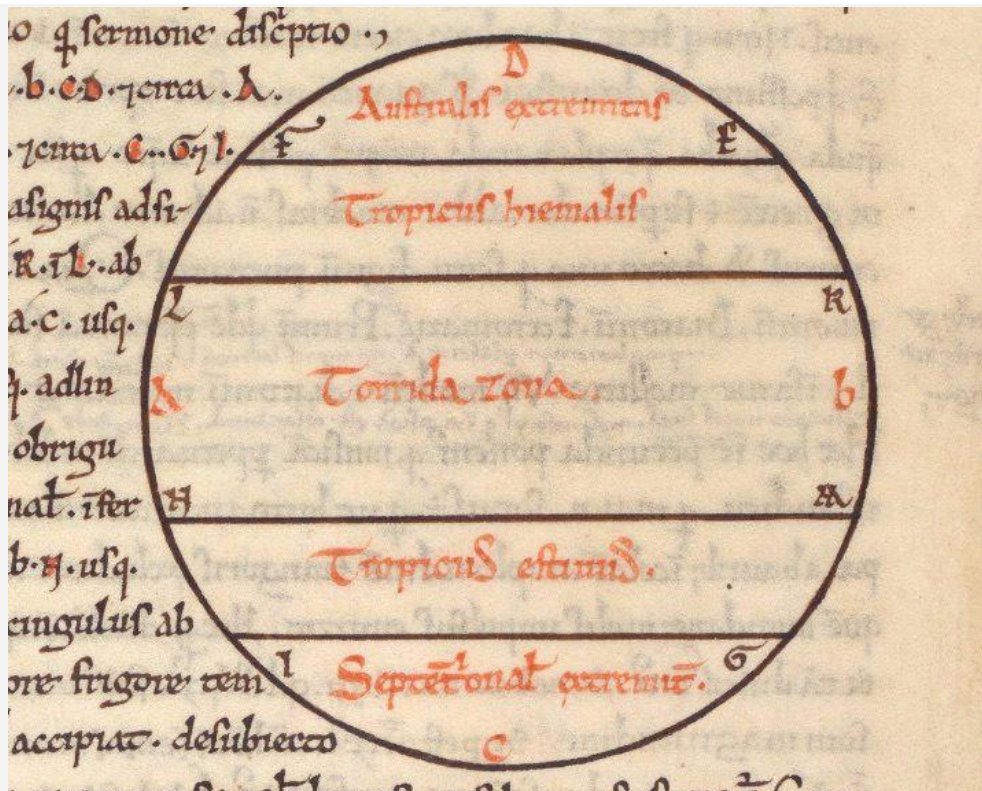 o qͥ sermone discͥptio .,
.b.C.D. ⁊ circa .A.
⁊ circa .C..G.⁊ I.
asignis adsi-
R. ī L. ab
a.c. usq.
q. adlin
obrigu
nal̄. īfer
b.N. usq.
cingulus ab
ore frigore tem
accipiat. desubiecto
D
Australis extremitas
F E
Tropicus hiemalis
L R
A Torrida zona. b
N M
Tropicus estiuus.
I Septēt͛onal̄ extremit̄. G
C